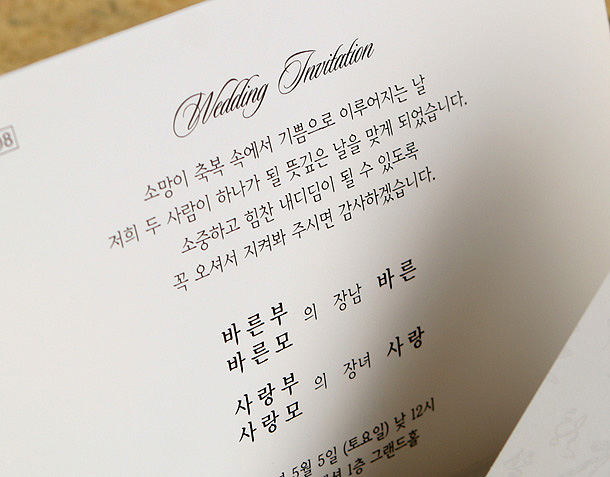 Wedding Invitation
소망이 축복 속에서 기쁨으로 이루어지는 날
저희 두 사람이 하나가 될 뜻깊은 날을 맞게 되었습니다.
소중하고 힘찬 내디딤이 될 수 있도록
꼭 오셔서 지켜봐 주시면 감사하겠습니다.
바른부
바른모
의 장남 바른
사랑부
사랑모
의 장녀 사랑
5월 5일 (토요일) 낮 12시
1층 그랜드홀